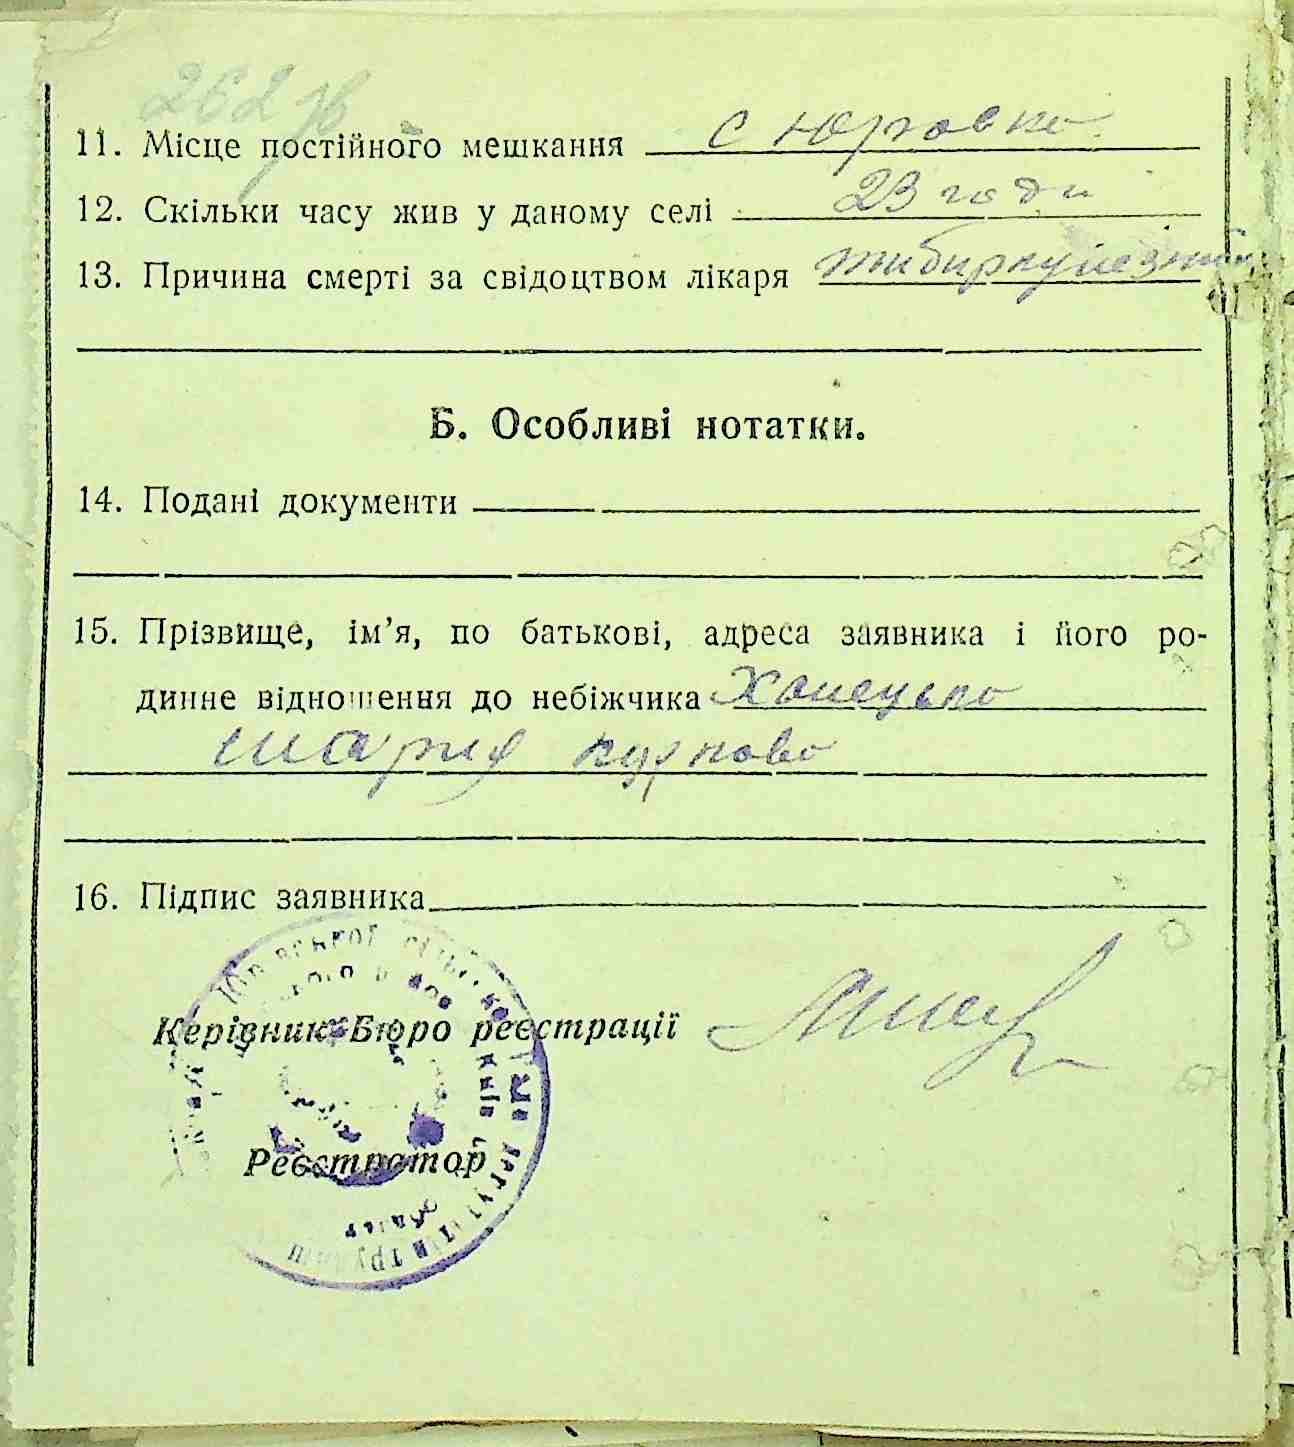 262 зв
11. Місце постійного мешкання с Юровка
12. Скільки часу жив у даному селі 23 годи
13. Причина смерті за свідоцтвом лікаря
Б. Особливі нотатки.
14. Подані документи
15. Прізвище, ім'я, по батькові, адреса заявника і його ро-
динне відношення до небіжчика Ханецько
16. Підпис заявника
Керівник Бюро реєстрації
Реєстратор